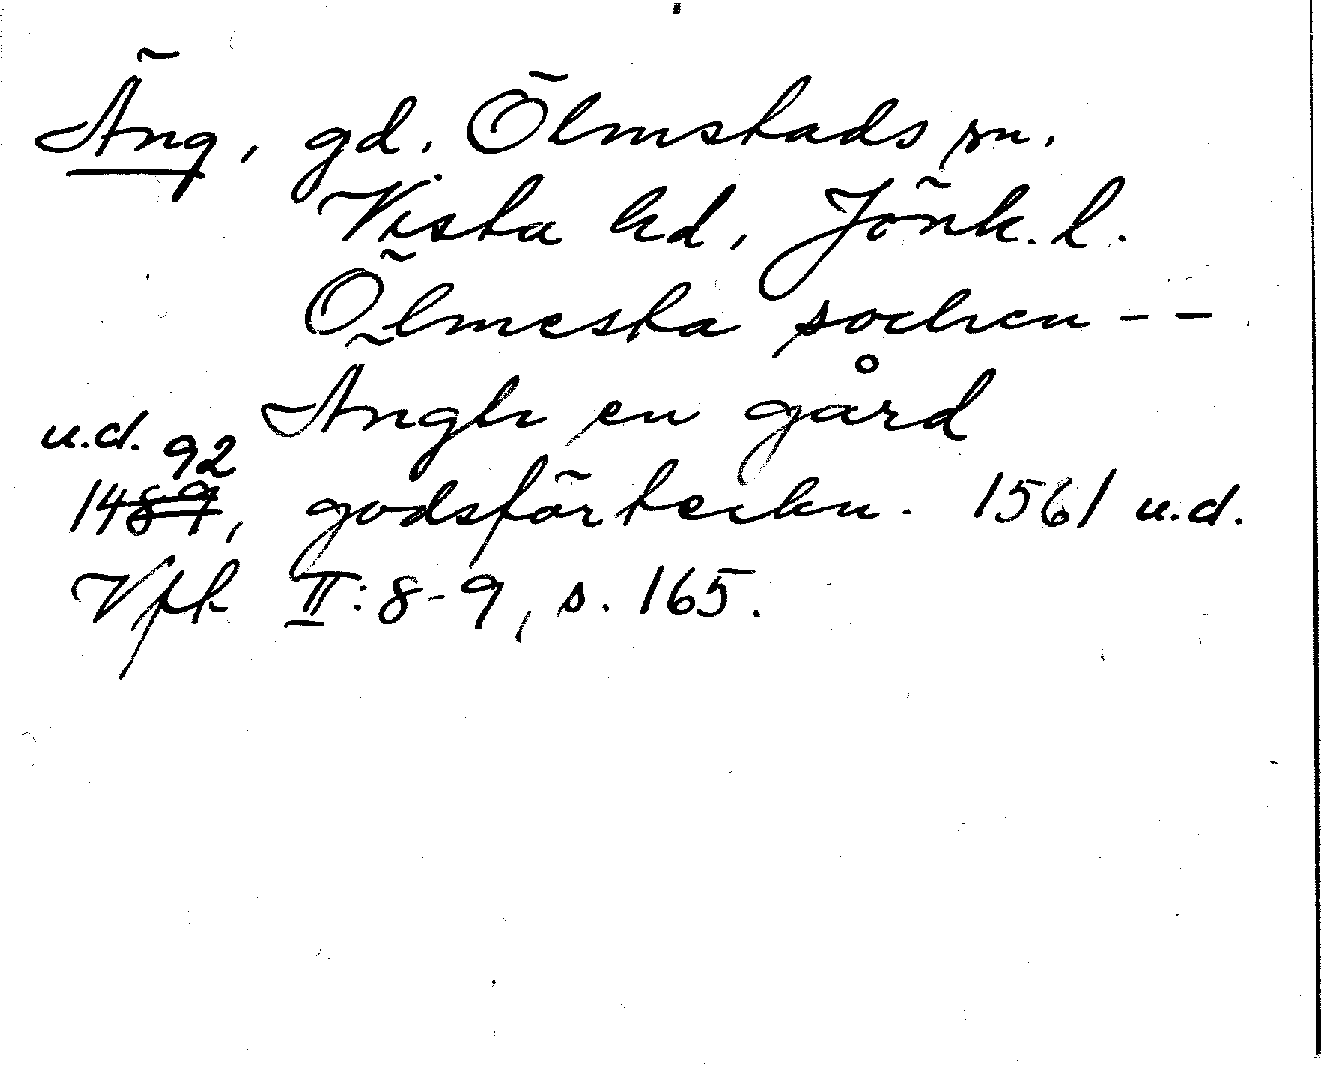 Äng, gd. Ölmstads sn.
Vista hd, Jönk. l.
Ölmesta sochen - -
Anghr en gård
u.d. 92
1489, godsförteckn. 1561 u.d.
Vfk II:8-9, s. 165.